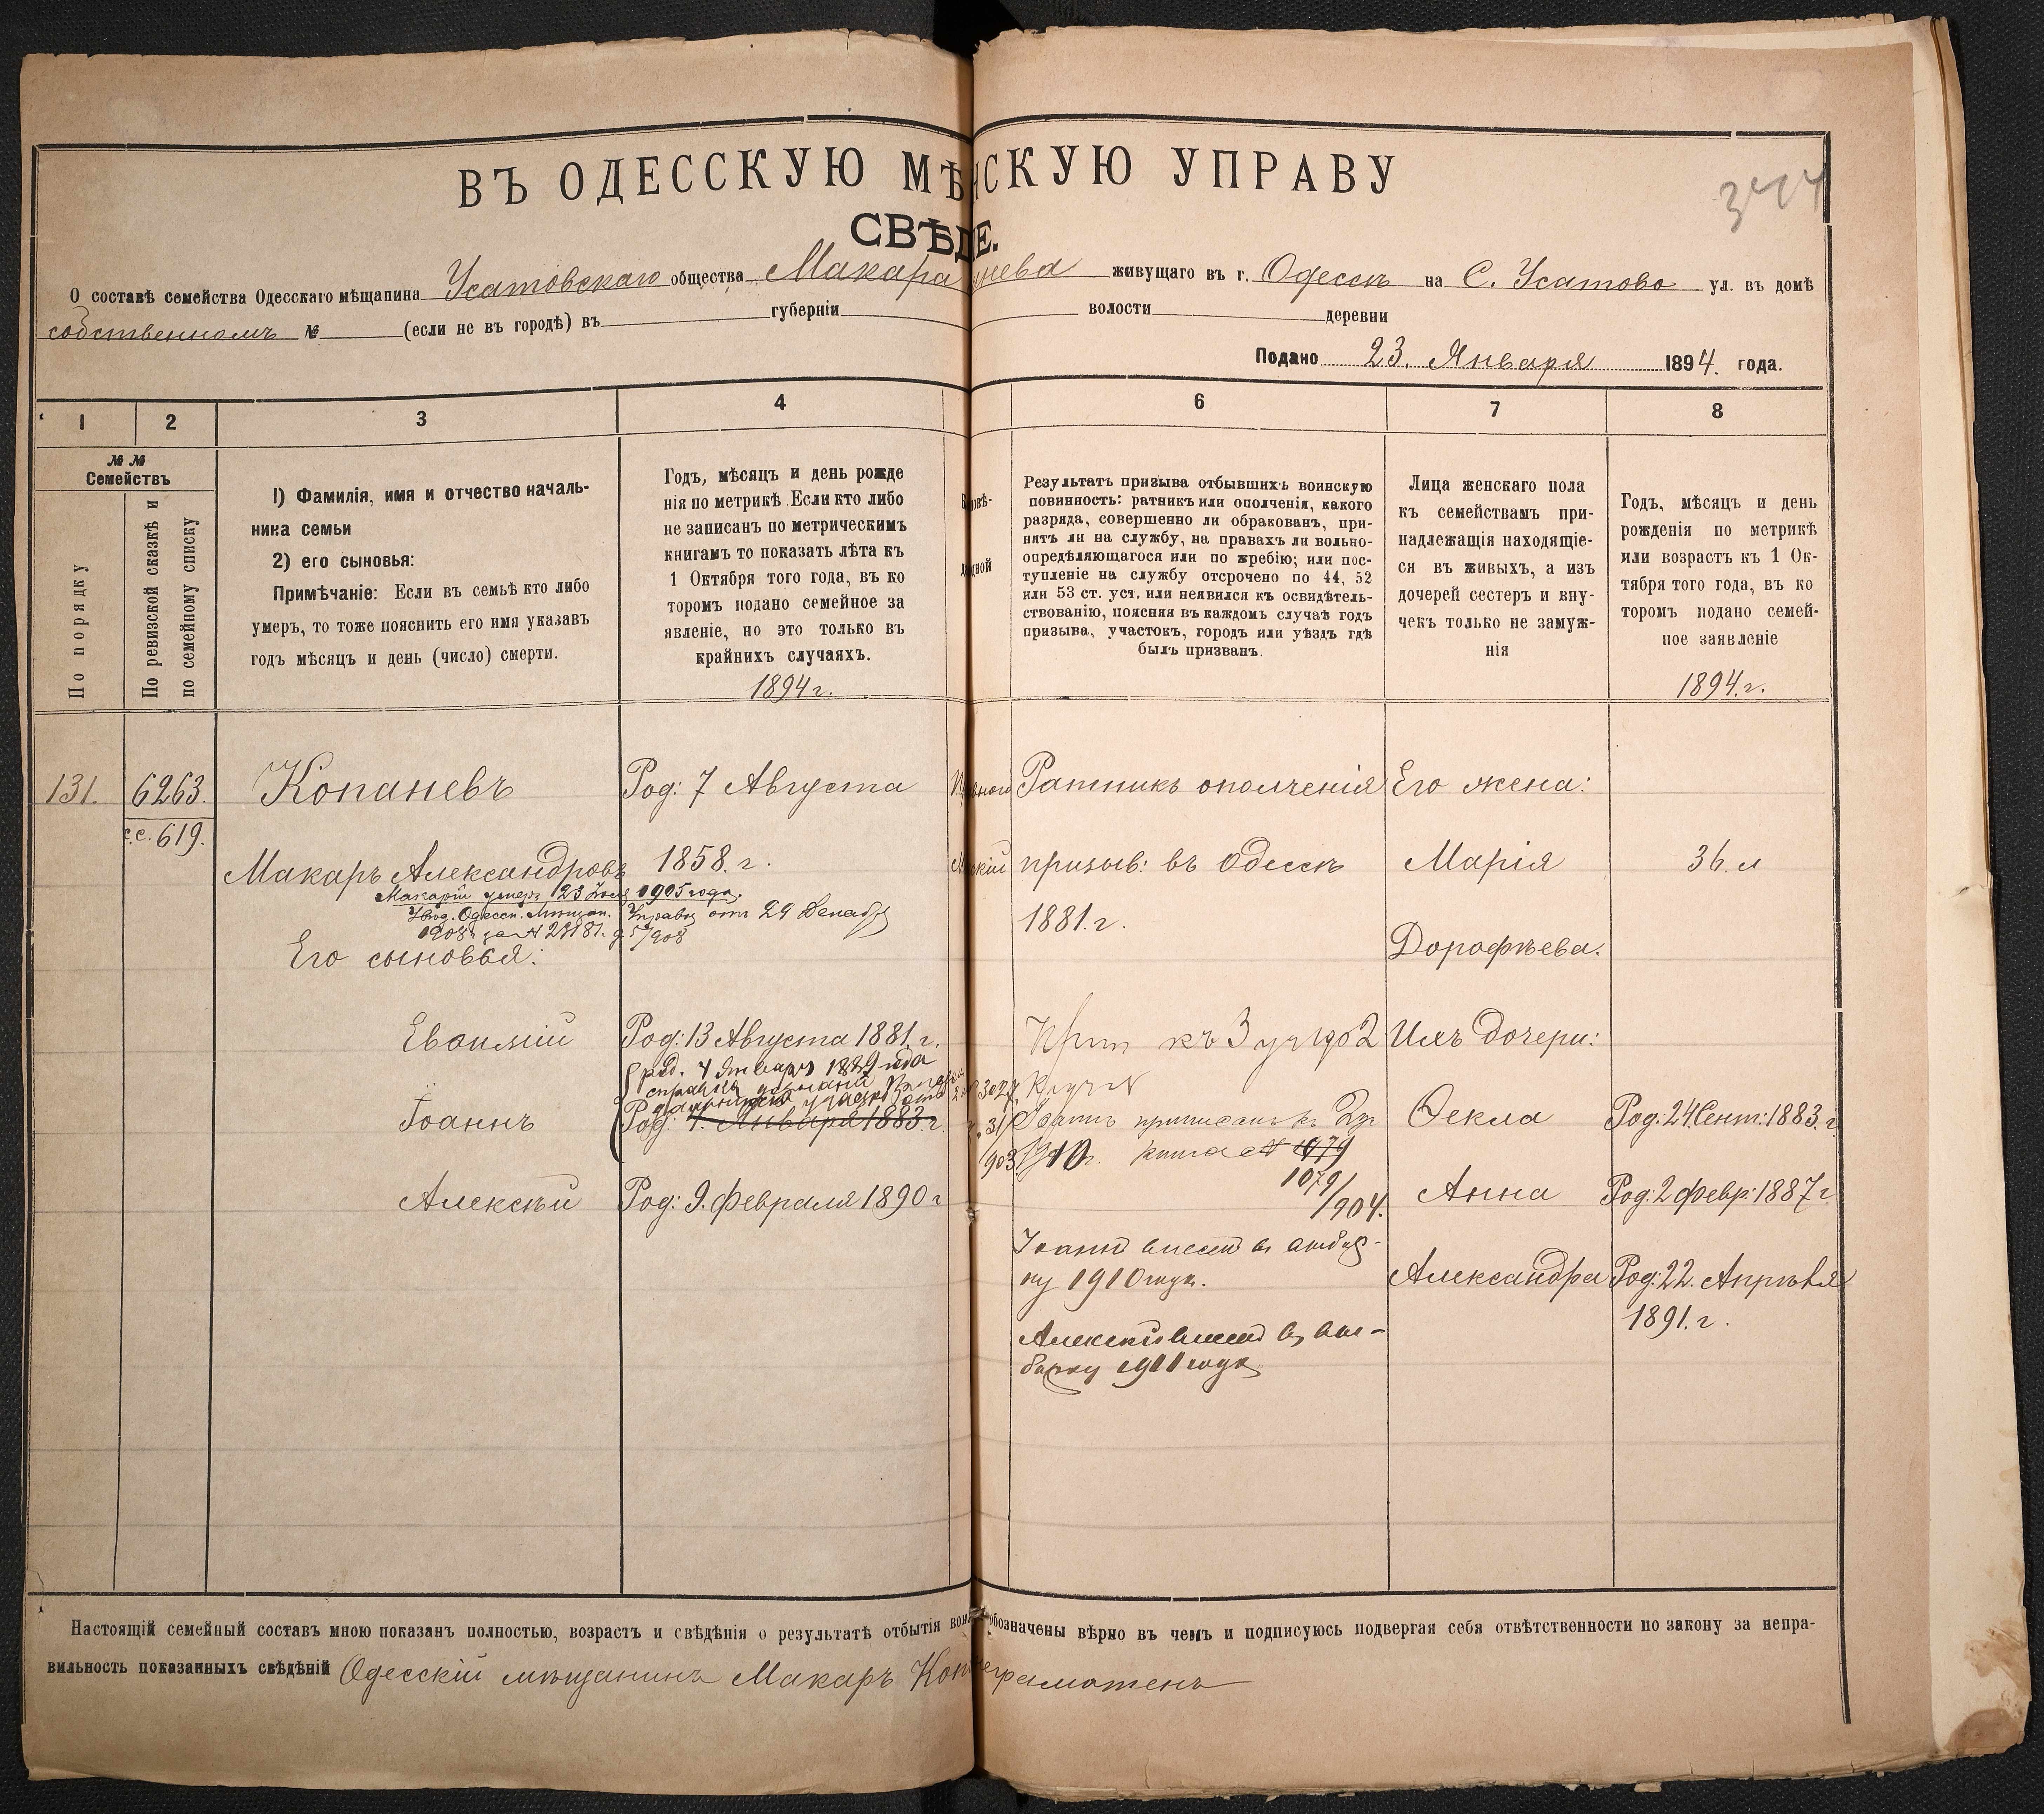 ВЪ ОДЕССКУЮ МѢ СКУЮ УПРАВУ
344
СВѢДЕ.
О составѣ семейства Одесскаго мѣщанина Усатовскаго общества Макара нева живущаго въ г. Одессѣ на С. Усатово ул. въ домѣ
собственномъ № (если не въ городѣ) въ губерніи волости деревни
Подано 23. Января 1894. года.
1 2 3 4 6 7 8
№№
Семействъ
По порядку
По ревизской сказкѣ и
по семейному списку
1) Фамилія, имя и отчество началь-
ника семьи
2) его сыновья:
Примѣчаніе: Если въ семьѣ кто либо
умеръ, то тоже пояснить его имя указавъ
годъ мѣсяцъ и день (число) смерти.
Годъ, мѣсяцъ и день рожде
нія по метрикѣ. Если кто либо
не записанъ по метрическимъ
книгамъ то показать лѣта къ
1 Октября того года, въ ко
торомъ подано семейное за
явленіе, но это только въ
крайнихъ случаяхъ.
1894 г.
Результатъ призыва отбывшихъ воинскую
повинность: ратникъ или ополченія, какого
разряда, совершенно ли обракованъ, при-
нятъ ли на службу, на правахъ ли вольно-
опредѣляющагося или по жребію; или пос-
тупленіе на службу отсрочено по 44, 52
или 53 ст. уст. или неявился къ освидѣтель-
ствованію, поясняя въ каждомъ случаѣ годъ
призыва, участокъ, городъ или уѣздъ гдѣ
былъ призванъ.
Лица женскаго пола
къ семействамъ при-
надлежащія находящіе-
ся въ живыхъ, а изъ
дочерей сестеръ и вну-
чекъ только не замуж-
нія
Годъ, мѣсяцъ и день
рожденія по метрикѣ
или возрастъ къ 1 Ок-
тября того года, въ ко
торомъ подано семей-
ное заявленіе
1894. г.
131. 6263. Копаневъ Род: 7 Августа Ратникъ ополченія Его жена:
с.с. 619.
Макаръ Александровъ 1858. г. призыв: въ Одессѣ Марія 36. л
Макарій умеръ 23 1905 года.
Увѣд. Одесск. Мѣщан. Управы отъ 29 Декабр
1908 за № 28181. 1908
1881. г. Дорофѣева.
Его сыновья:
Евфимій Род: 13 Августа 1881. г. къ 3 уч Ихъ дочери:
род. 4 Января 1889 года
Іоаннъ Род: 1. Января 1883 г. Іоаннъ приписанъ къ 2 Ѳекла Род: 24 Сент: 1883. г.
1910 г. книга № 1079
1079/904.
Алексѣй Род: 9. февраля 1890 г Анна Род: 2 февр: 1887 г
Іоаннъ внесенъ въ выбор-
ку 1910 года. Александра Род: 22. Апрѣля
1891. г.
Алексѣй внесенъ въ вы-
борку 1911 года
Настоящій семейный составъ мною показанъ полностью, возрастъ и свѣдѣнія о результатѣ отбытія вои обозначены вѣрно въ чемъ и подписуюсь подвергая себя отвѣтственности по закону за непра-
вильность показанныхъ свѣдѣній Одесскій мѣщанинъ Макаръ Коп еграмотенъ